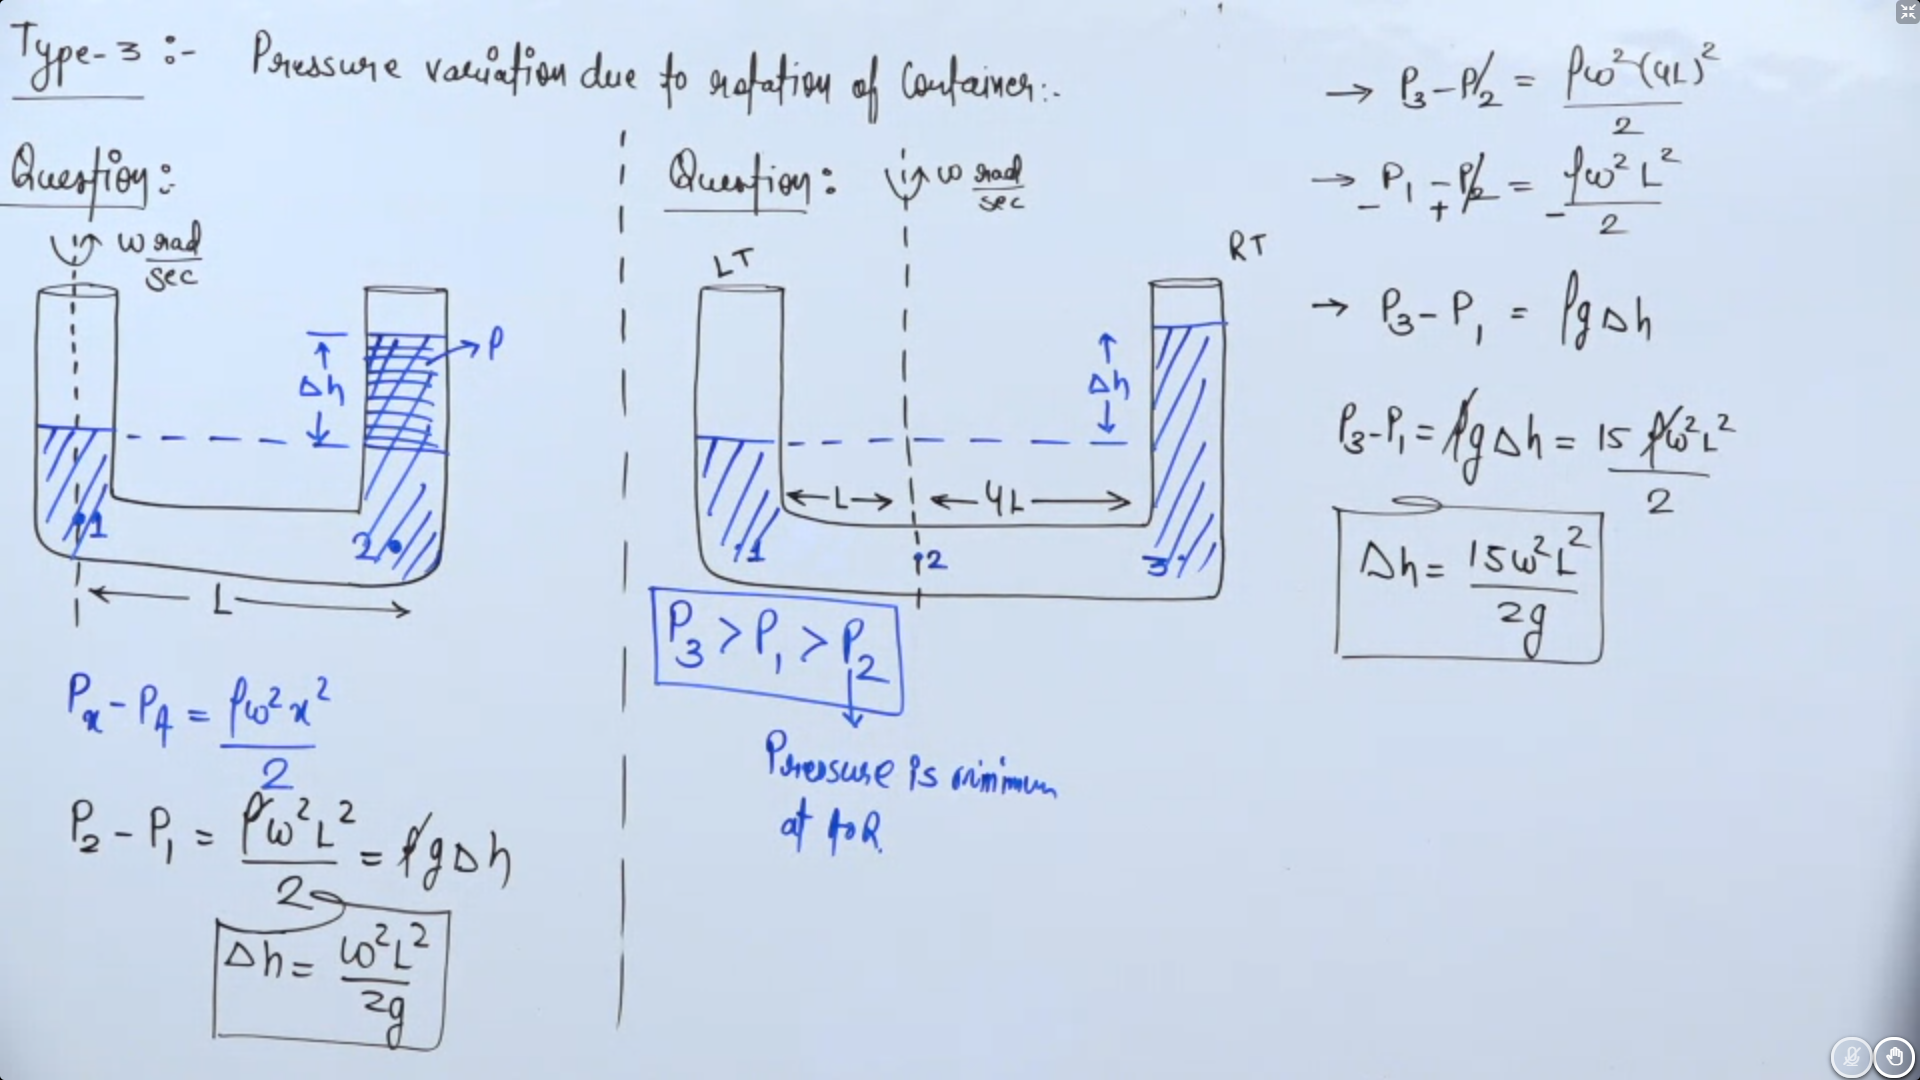 Type-3 :- Pressure variation due to rotation of Container:-
Question:-
ω rad/sec
Δh
ρ
1
2
L
Pₓ - P_A = ρω²x²/2
P₂ - P₁ = ρω²L²/2 = ρgΔh
Δh = ω²L²/2g
Question:
ω rad/sec
LT
RT
Δh
L
4L
1
2
3
P₃ > P₁ > P₂
Pressure is minimum
at AOR
→ P₃ - P₂ = ρω²(4L)²/2
→ P₁ - P₂ = ρω²L²/2
- + -
→ P₃ - P₁ = ρgΔh
P₃ - P₁ = ρgΔh = 15ρω²L²/2
Δh = 15ω²L²/2g